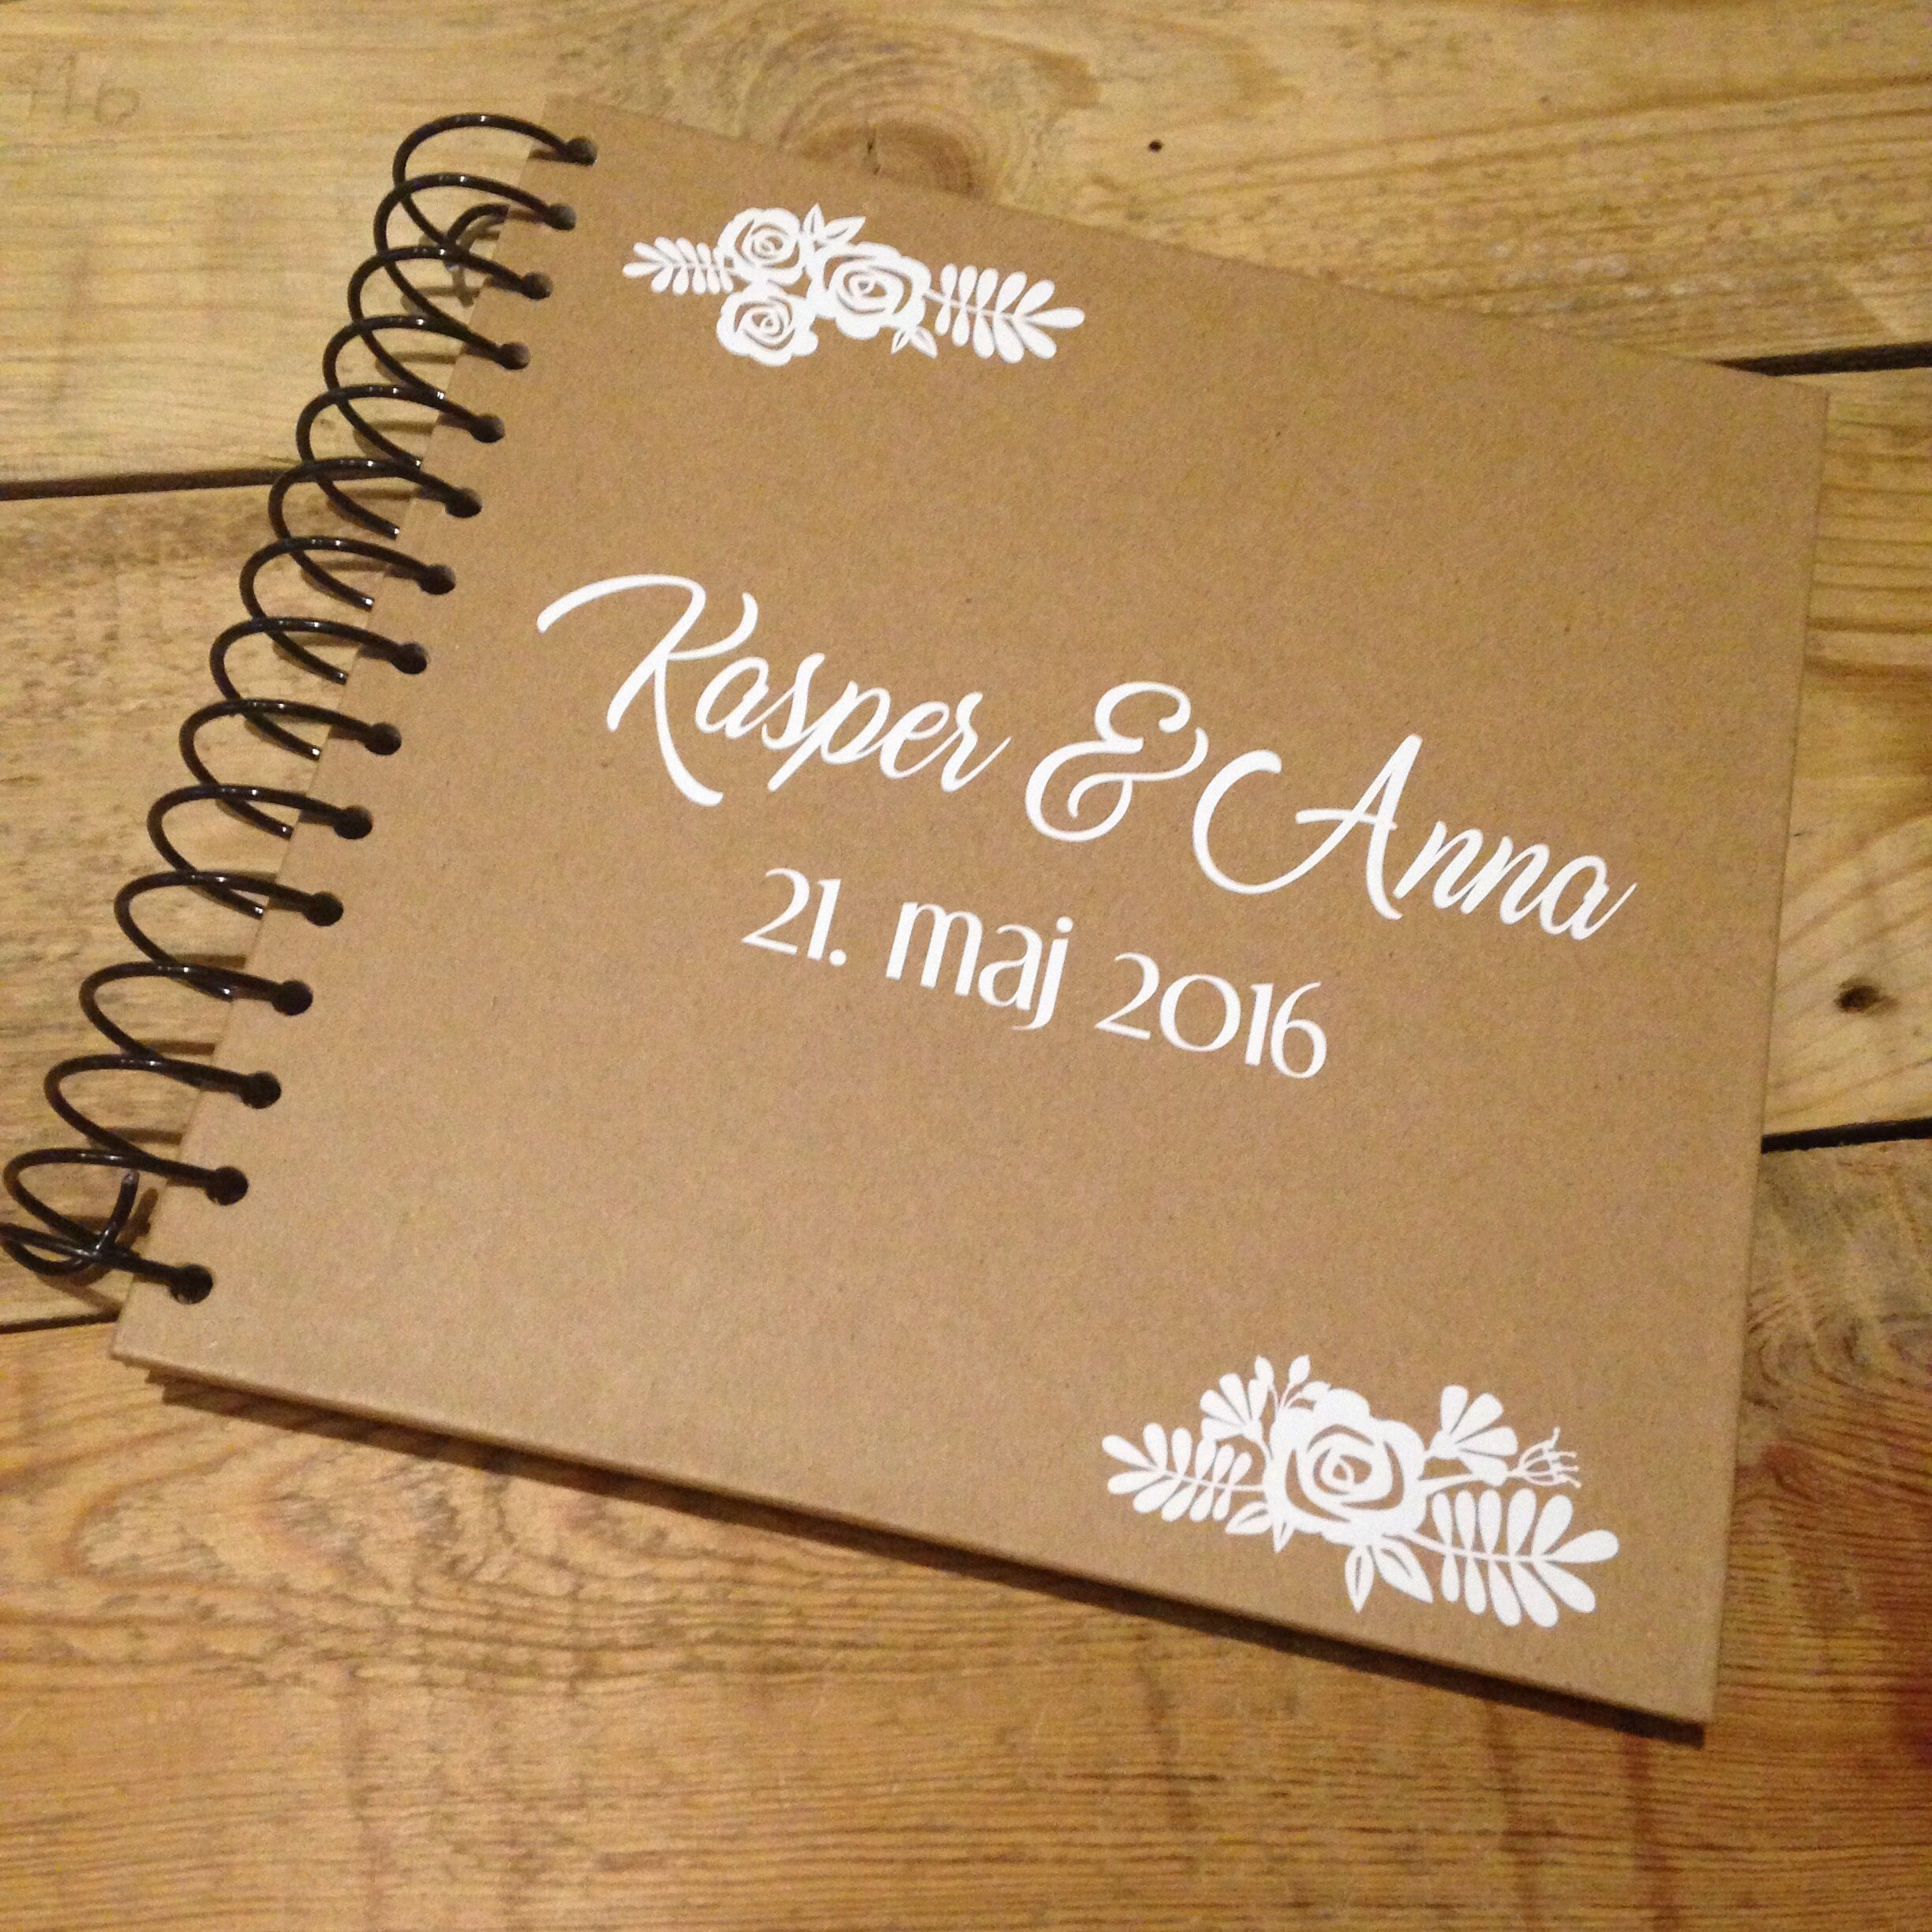 Kasper & Anna
21. maj 2016